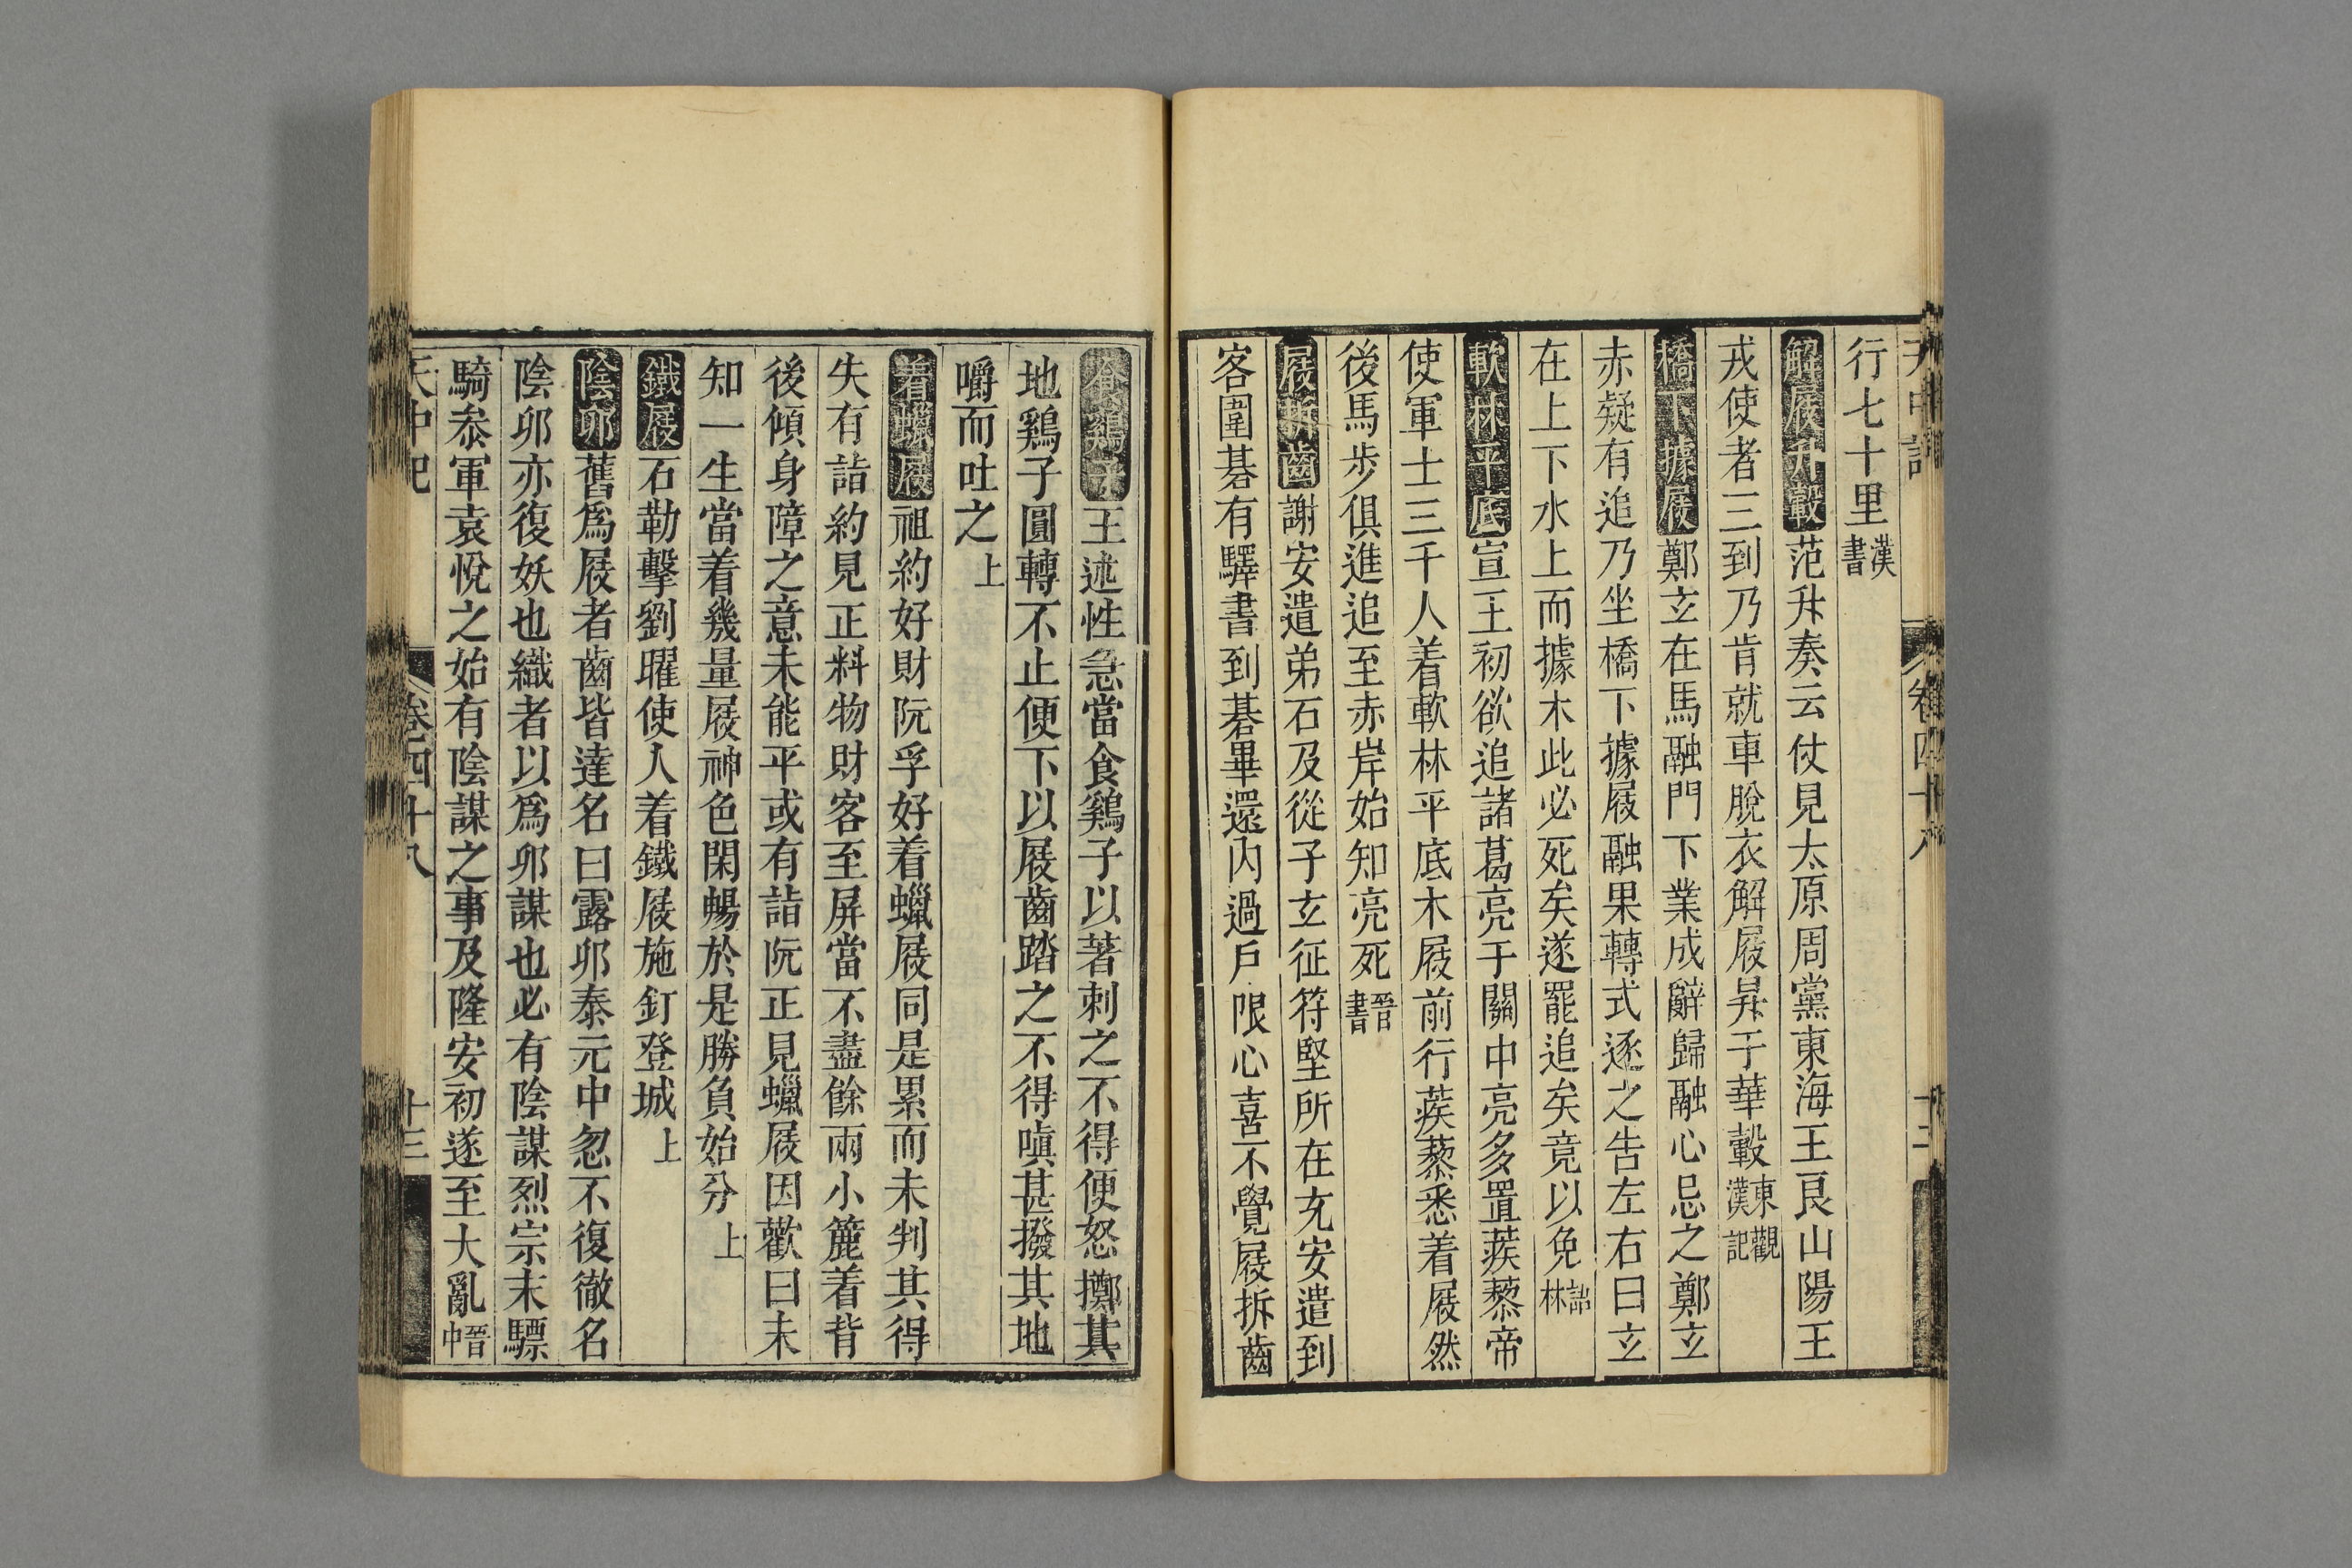 行七十里漢書
解屐升轂范升奏云仗見太原周黨東海王良山陽王
戎使者三到乃肯就車脫衣解屐昇于華轂東觀漢記
橋下據屐鄭玄在馬融門下業成辭歸融心忌之鄭玄
赤疑有追乃坐橋下據屐融果轉式逐之告左右曰玄
在上下水上而據木此必死矣遂罷追矣竟以免語林
軟林平底宣王初欲追諸葛亮于關中亮多置蒺藜帝
使軍士三千人着軟林平底木屐前行蒺藜悉着屐然
後馬步俱進追至赤岸始知亮死晉書
屐折齒謝安遣弟石及從子玄征符堅所在克安遣到
客圍棊有驛書到棊畢還內過戶限心喜不覺屐拆齒
食鷄子王述性急當食鷄子以著刺之不得便怒擲其
地鷄子圓轉不止便下以屐齒踏之不得嗔甚撥其地
嚼而吐之上
着蠟屐祖約好財阮孚好着蠟屐同是累而未判其得
失有詣約見正料物財客至屏當不盡餘兩小簏着背
後傾身障之意未能平或有詣阮正見蠟屐因歎曰未
知一生當着幾量屐神色閑暢於是勝負始分上
鐵屐石勒擊劉曜使人着鐵屐施釘登城上
陰卯舊爲屐者齒皆達名曰露卯泰元中忽不復徹名
陰卯亦復妖也織者以爲卯謀也必有陰謀烈宗末驃
騎叅軍袁悅之始有陰謀之事及隆安初遂至大亂晉中
天中記 卷四十八 十三